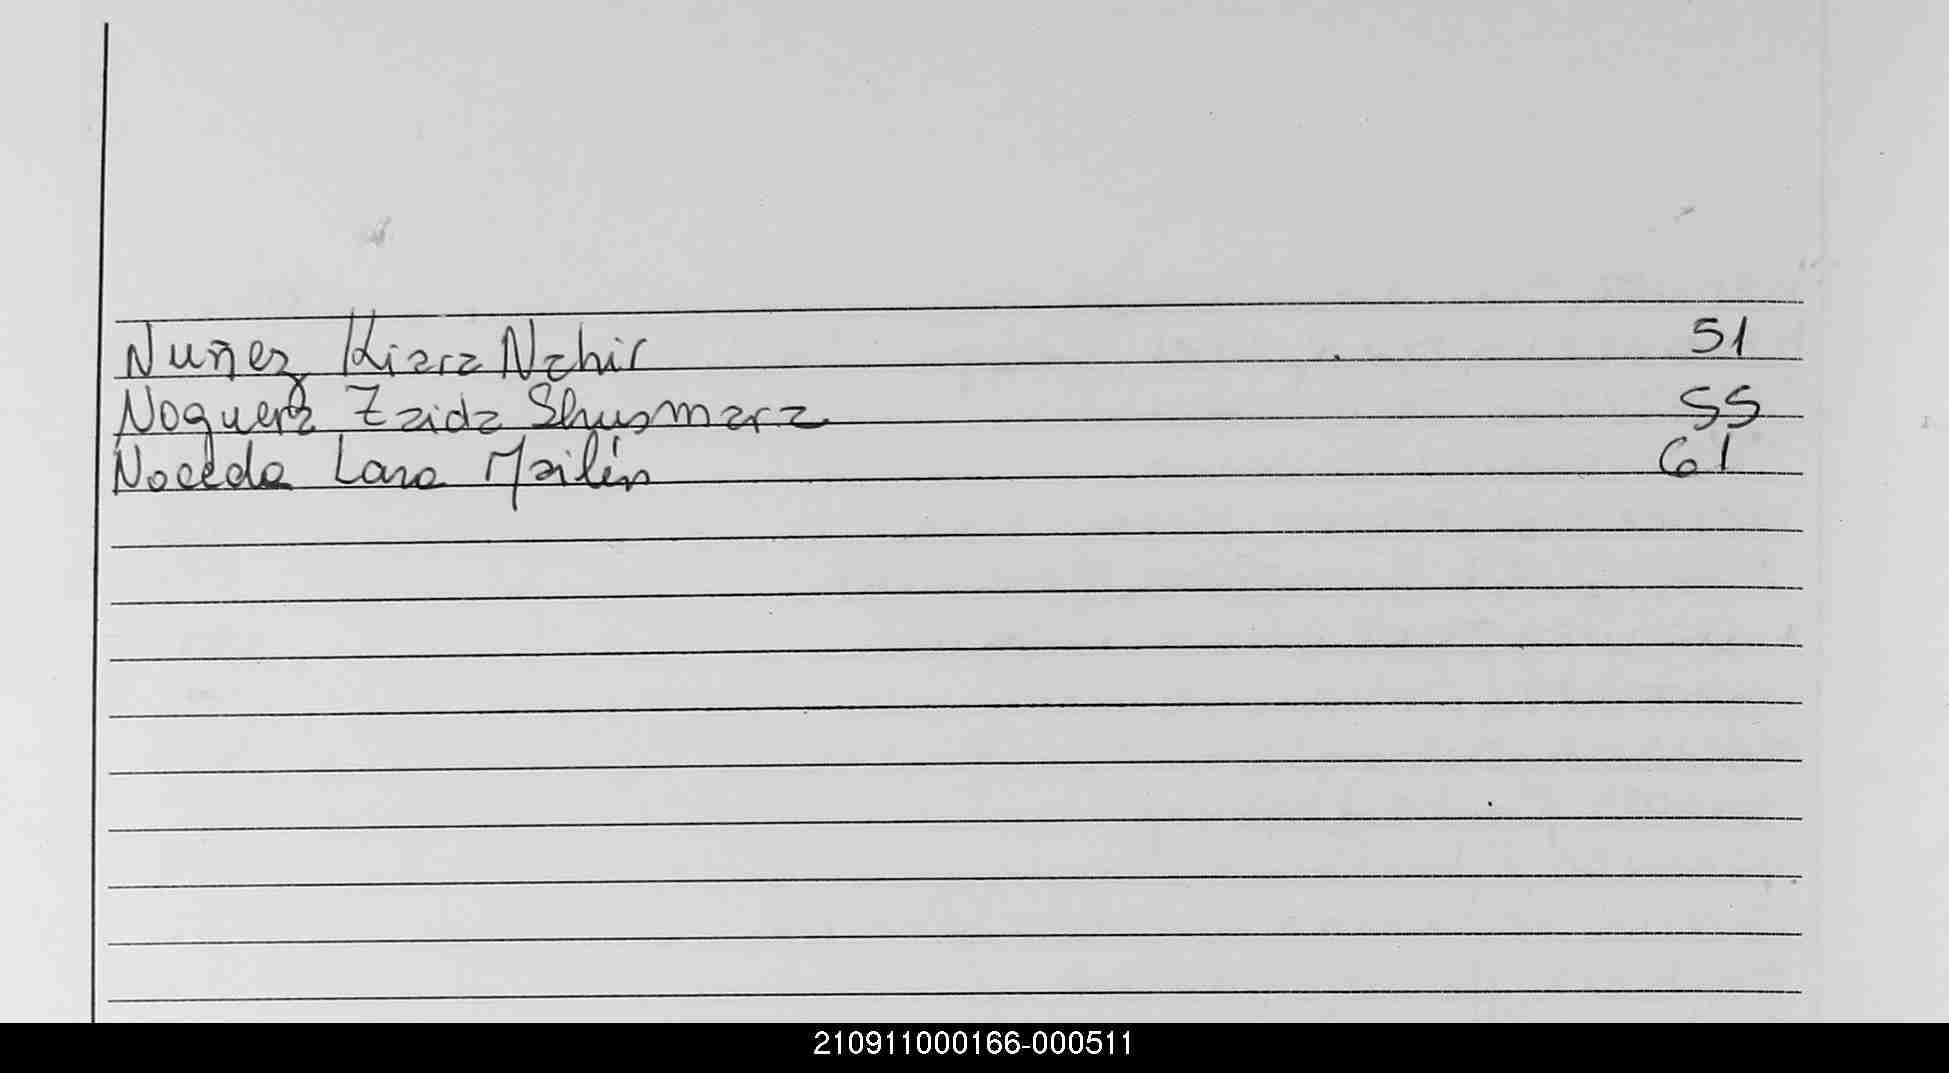 Nuñez Kiara Nahir 51
Noguera Zaida Shusmara 55
Noceda Lara Mailén 61
210911000166-000511